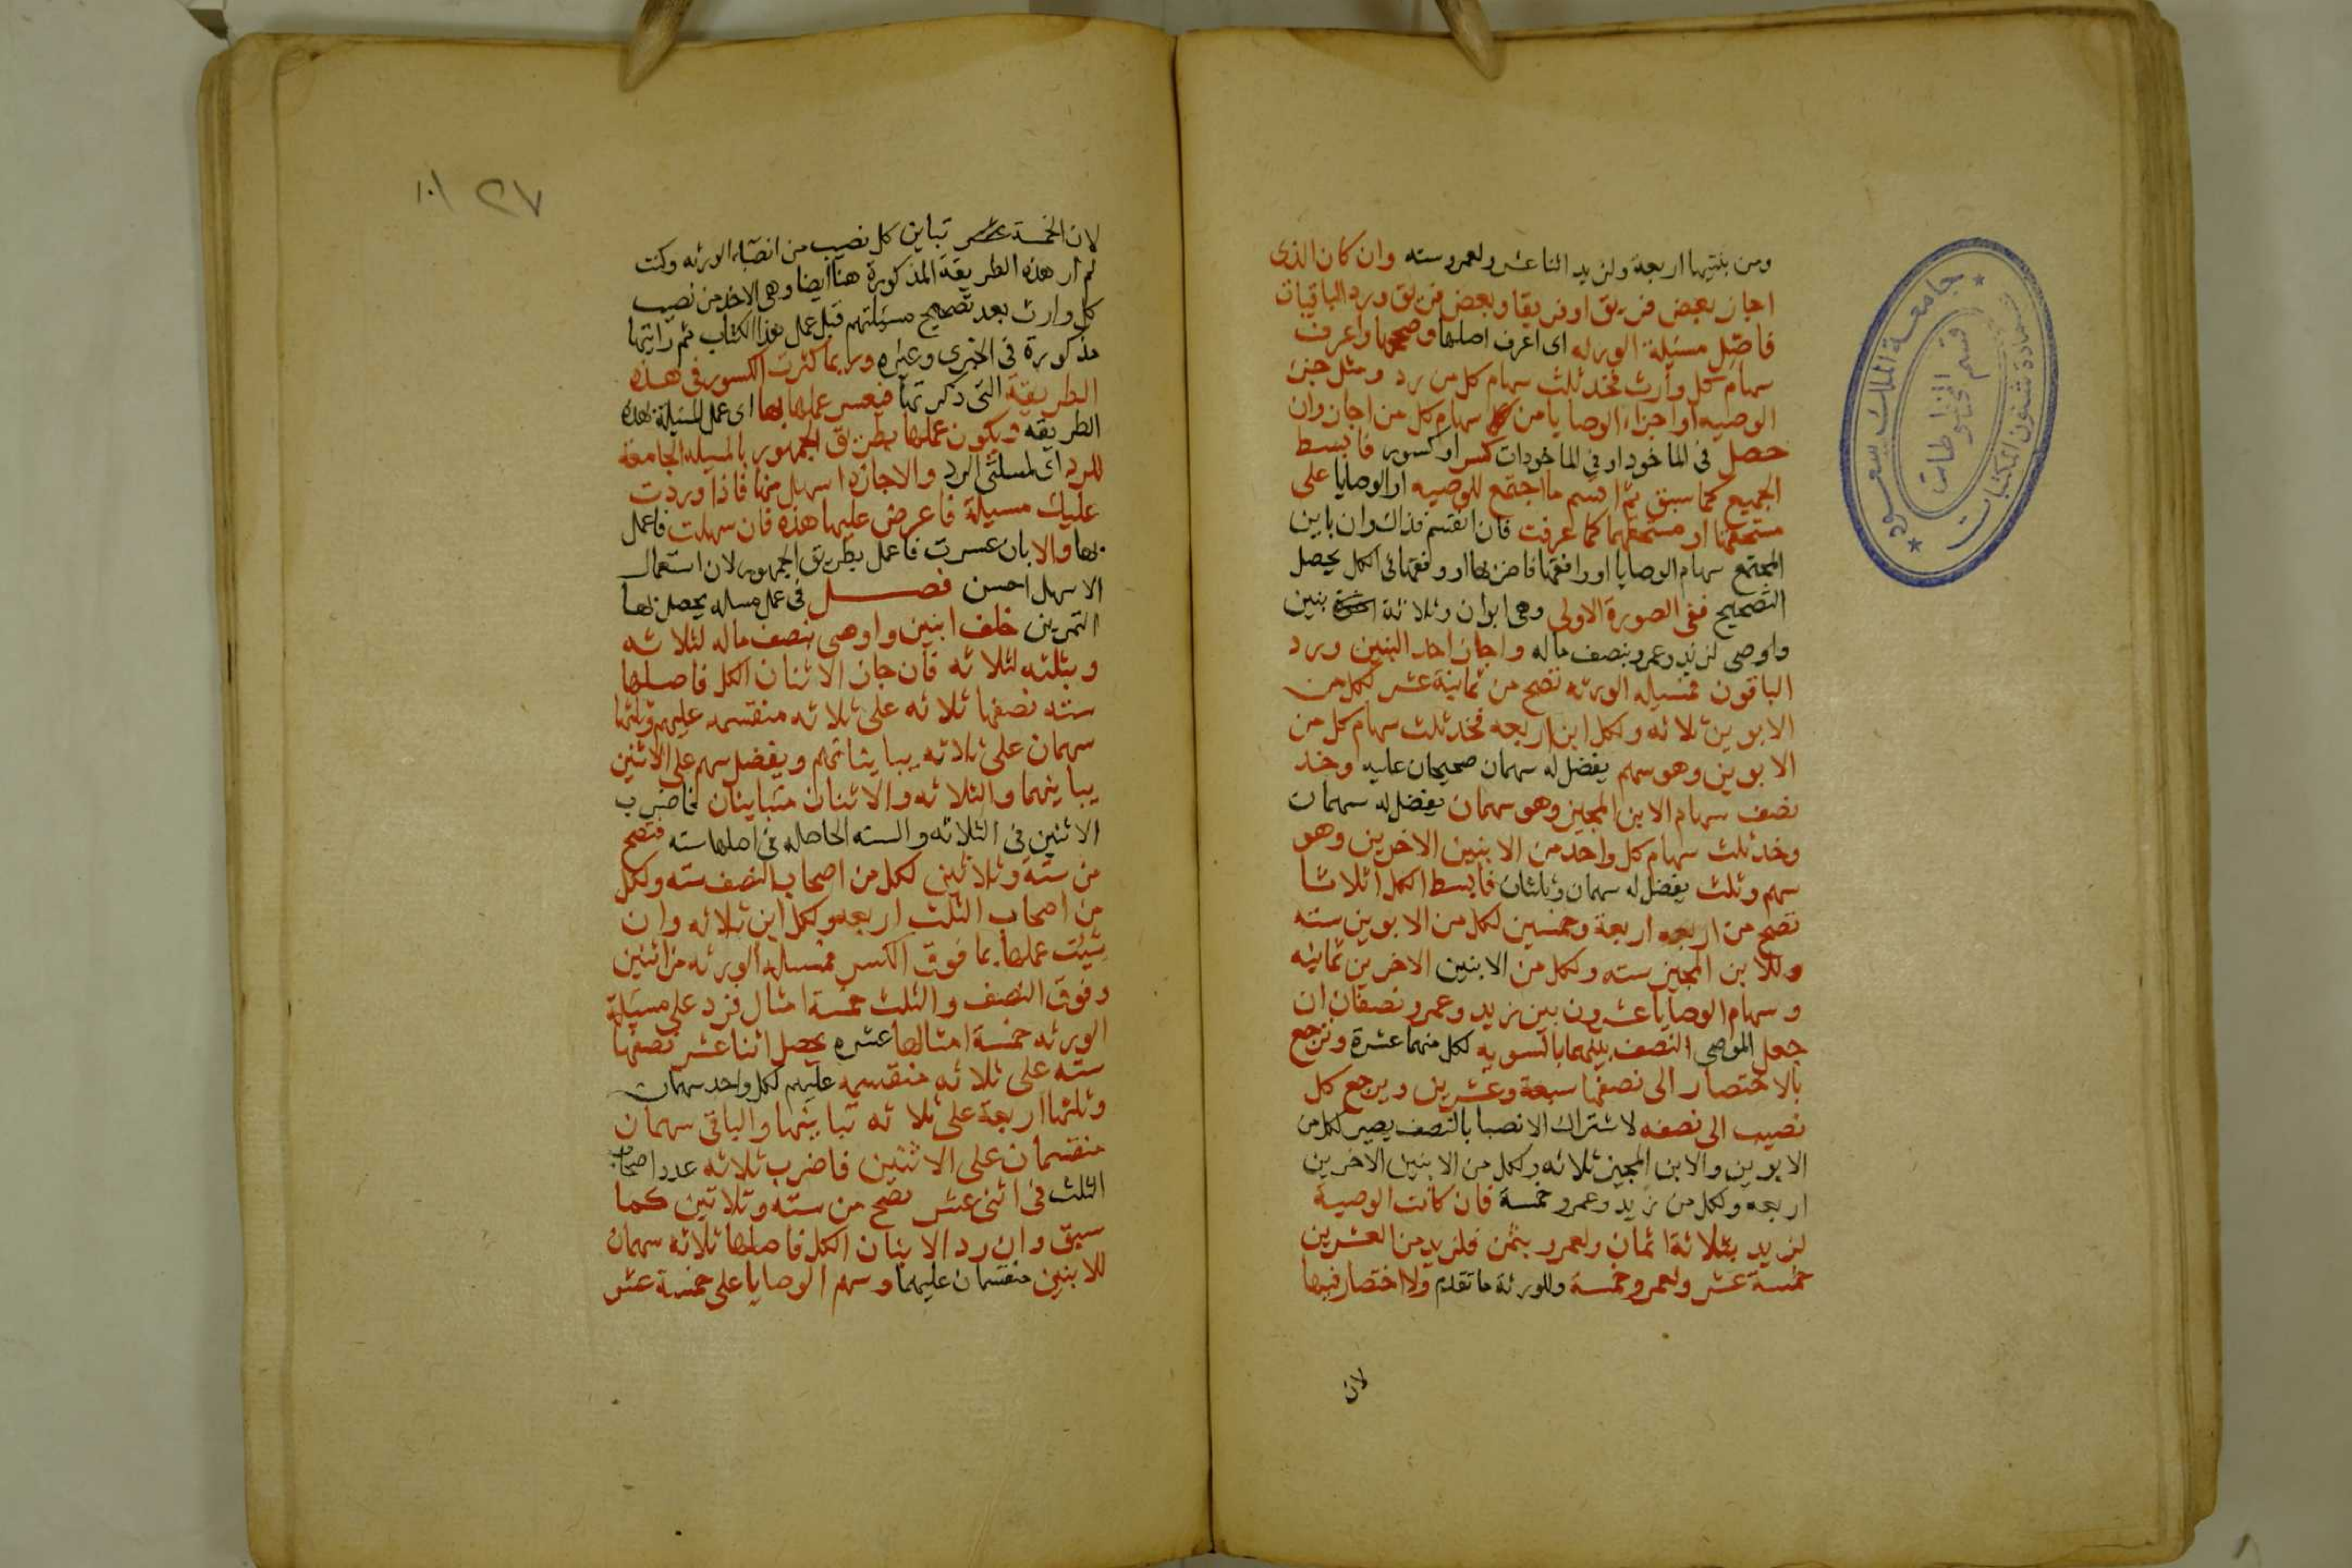 ومن بنتيها اربعة ولزيد اثنا عشر ولعمرو سته وان كان الذى
اجاز بعض فريق او فريقا وبعض فريق ورد الباقيات
فاصل مسئلة الورثه اى اعرف اصلها وصححها واعرف
سهام كل وارث فخذ ثلث سهام كل من رد ومثل جزء
الوصيه او اجزاء الوصايا من سهام كل من اجاز وان
حصل فى الماخود او فى الماخودات كسر او كسور فابسط
الجميع كما سبق ثم اقسم ما اجتمع للوصيه او الوصايا على
مستحقها او مستحقيها كما عرفت فان انقسم فذاك وان باين
المجتمع سهام الوصايا او وافقها فاضربها او وفقها فى الكل يحصل
التصحيح ففى الصورة الاولى وهى ابوان وثلاثة بنين
واوصى لزيد وعمرو بنصف ماله واجاز احد البنين ورد
الباقون فمسيله الورثه تصح من ثمانية عشر لكل من
الابوين ثلاثه ولكل ابن اربعه فخذ ثلث سهام كل من
الابوين وهو سهم يفضل له سهمان صحيحان عليه وخذ
نصف سهام الابن المجيز وهو سهمان يفضل له سهمان
وخذ ثلث سهام كل واحد من الابنين الاخرين وهو
سهم وثلث يفضل له سهمان وثلثان فابسط الكل اثلاثا
تصح من اربعه اربعة وخمسين لكل من الابوين سته
وللابن المجيز سته ولكل من الابنين الاخرين ثمانيه
وسهام الوصايا عشرون بين زيد وعمرو نصفان ان
جعل الموصى النصف بينهما بالسويه لكل منهما عشرة وترجع
بالاختصار الى نصفها سبعة وعشرين ويرجع كل
نصيب الى نصفه لاشتراك الانصبا بالنصف يصير لكل من
الابوين والابن المجيز ثلاثه ولكل من الابنين الاخرين
اربعه ولكل من زيد وعمرو خمسة فان كانت الوصية
لزيد بثلاثة اثمان ولعمرو بثمن فلزيد من العشرين
خمسة عشر ولعمرو خمسة وللورثة ما تقدم ولا اختصار فيها
لان
جامعة الملك سعود
عمادة شئون المكتبات
قسم المخطوطات
١٠١ ٢٧
لان الخمسة عشر تباين كل نصيب من انصباء الورثه وكنت
لم ار هذه الطريقة المذكورة هنا ايضا وهى الاخذ من نصيب
كل وارث بعد تصحيح مسئلتهم قبل عمل هذا الكتاب ثم رايتها
مذكورة فى الخبرى وغيره وربما كثرت الكسور فى هذه
الطريقة التى ذكرتها فيعسر عملها بها اى عمل المسئلة بهذه
الطريقه ويكون عملها بطريق الجمهور بالمسيله الجامعة
للرد اى لمسئلتى الرد والاجازه اسهل منها فاذا وردت
عليك مسيلة فاعرض عليها هذه فان سهلت فاعمل
بها والا بان عسرت فاعمل بطريق الجمهور لان استعمال
الاسهل احسن فصل فى عمل مسله يحصل بها
التمرين خلف ابنين واوصى بنصف ماله لثلاثه
وبثلثه لثلاثه فان جاز الاثنان الكل فاصلها
سته نصفها ثلاثه على ثلاثه منقسمه عليهم وثلثها
سهمان على ثلاثه يباينانهم ويفضل سهم على الاثنين
يباينهما والثلاثه والاثنان متباينان فاضرب
الاثنين فى الثلاثه والسته الحاصله فى اصلها سته فتصح
من ستة وثلاثين لكل من اصحاب النصف سته ولكل
من اصحاب الثلث اربعه ولكل ابن ثلاثه وان
شيت عملها بما فوق الكسر فمسيله الورثه من اثنين
وفوق النصف والثلث خمسة امثال فزد على مسيلة
الورثه خمسة امثالها عشره يحصل اثنا عشر نصفها
سته على ثلاثه منقسمه عليهم لكل واحد سهمان
وثلثها اربعة على ثلاثه تباينها والباقى سهمان
منقسمان على الاثنين فاضرب ثلاثه عدد اصحاب
الثلث فى اثنى عشر تصح من سته وثلاثين كما
سبق وان رد الابنان الكل فاصلها ثلاثه سهمان
للابنين منقسمان عليهما وسهم الوصايا على خمسة عشر